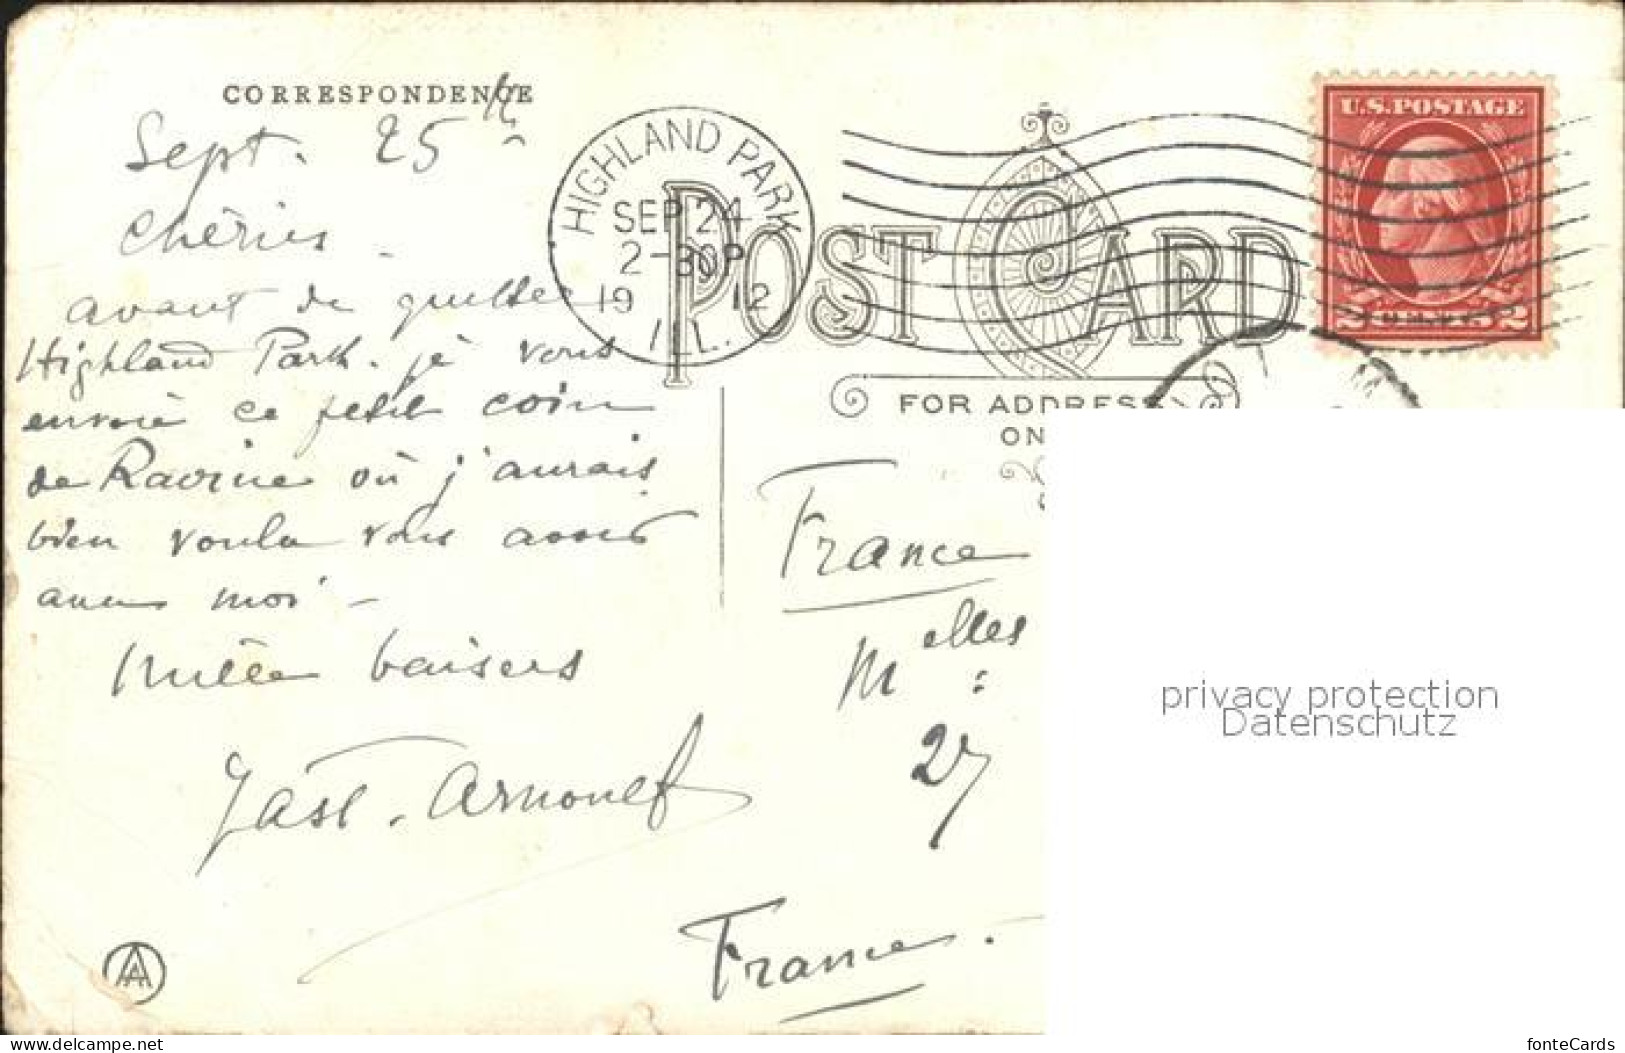 CORRESPONDENCE
Sept. 25th
Chéries
avant de quitter
Highland Park. je vous
envoie ce petit coin
de Ravine où j'aurais
bien voulu vous avoir
avec moi -
mille baisers
HIGHLAND PARK
SEP 24
2-30P
1912
ILL.
POST CARD
U.S. POSTAGE
2 CENTS 2
FOR ADDRESS
ON
France
Melles
27
France.
privacy protection
Datenschutz
www.delcampe.net
fonteCards